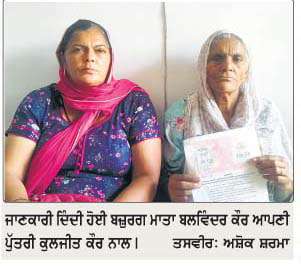 ਜਾਣਕਾਰੀ ਦਿੰਦੀ ਹੋਈ ਬਜ਼ੁਰਗ ਮਾਤਾ ਬਲਵਿੰਦਰ ਕੌਰ ਆਪਣੀ
ਪੁੱਤਰੀ ਕੁਲਜੀਤ ਕੌਰ ਨਾਲ। ਤਸਵੀਰ: ਅਸ਼ੋਕ ਸ਼ਰਮਾ